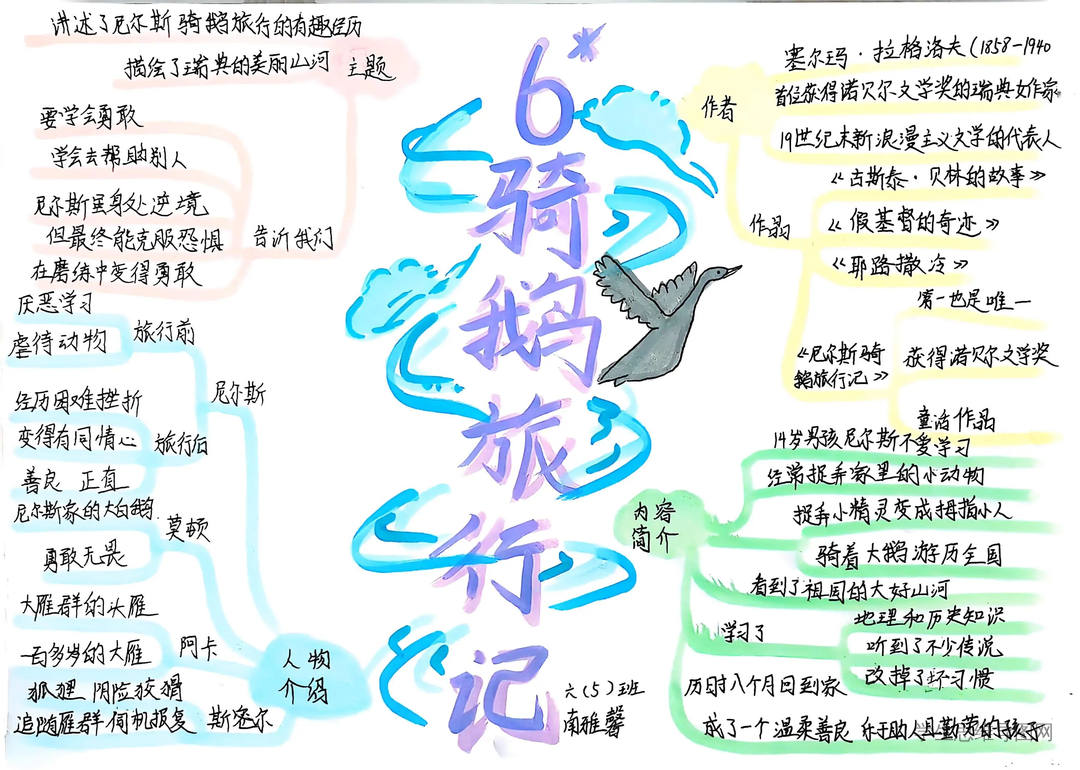 6*骑鹅旅行记
讲述了尼尔斯骑鹅旅行的有趣经历
描绘了瑞典的美丽山河
主题
要学会勇敢
学会去帮助别人
尼尔斯虽身处逆境
但最终能克服恐惧
在磨练中变得勇敢
告诉我们
作者
塞尔玛·拉格洛夫(1858-1940
首位获得诺贝尔文学奖的瑞典女作家
19世纪末新浪漫主义文学的代表人
作品
《古斯泰·贝林的故事》
《假基督的奇迹》
《耶路撒冷》
《尼尔斯骑
鹅旅行记》
第一也是唯一
获得诺贝尔文学奖
童话作品
内容
简介
14岁男孩尼尔斯不爱学习
经常捉弄家里的小动物
捉弄小精灵变成拇指小人
骑着大鹅游历全国
看到了祖国的大好山河
学习了
地理和历史知识
听到了不少传说
改掉了坏习惯
历时八个月回到家
成了一个温柔善良 乐于助人且勤劳的孩子
人物
介绍
尼尔斯
旅行前
厌恶学习
虐待动物
旅行后
经历困难挫折
变得有同情心
善良 正直
莫顿
尼尔斯家的大白鹅
勇敢无畏
阿卡
大雁群的头雁
一百多岁的大雁
斯密尔
狐狸 阴险狡猾
追随雁群伺机报复
六(5)班
南雅馨